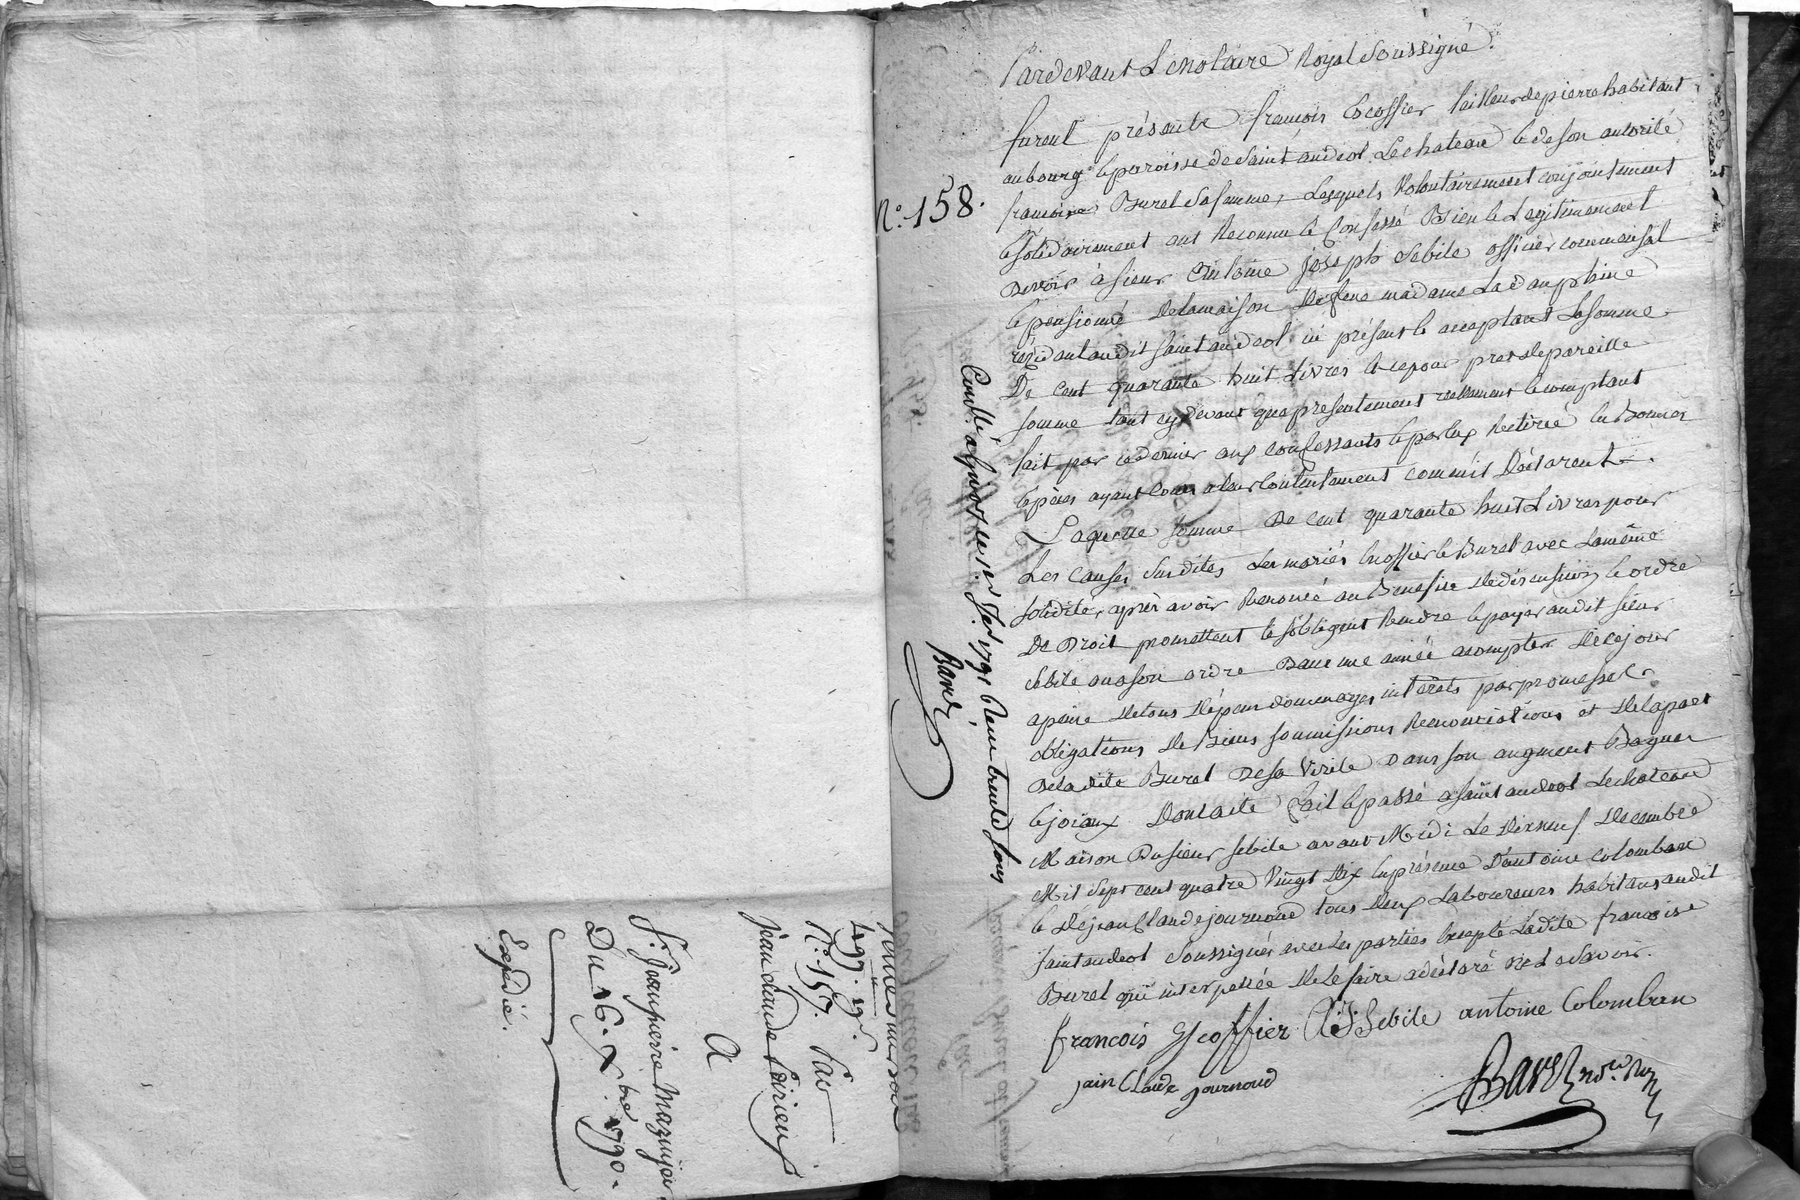 Pardevant Le Notaire Royal Soussigné.
furent présents françois Escoffier tailleur de pierre habitant
au bourg & parroisse de Saint andeol Le chateau & de son autorité
françoise Burel Sa femme, Lesquels Volontairement conjointement
& Solidairement ont Reconnu & Confessé Bien & Legitimement
Devoir à Sieur Antoine Joseph Sebile officier commensal
& pensionné De la maison De feue madame La dauphine
résidant audit Saint andeol ici présent & acceptant La Somme
De cent quarante huit Livres & ce pour prest de pareille
Somme tant cy devant que présentement réellement & comptant
fait par ce dernier aux confessants & par Eux Retirée En Bonnes
& pièces ayant Cours a leur Contentement comm'il Déclarent.
Laquelle Somme De cent quarante huit Livres pour
Les causes Susdites Les mariés Escoffier & Burel avec La même
Solidité, après avoir Renoncé au Benefice De discussion & ordre
De Droit promettent & S'obligent Rendre & payer audit Sieur
Sebile ou a son ordre Dans une année a compter De ce jour
a peine De tous Dépens domages intérêts par promesses
obligations De Biens Soumissions Renonciations et De la part
De la dite Burel De sa Virile Dans son augment Bagues
& joiaux Dont acte fait & passé a Saint andeol Le chateau
Maison Du Sieur Sebile avant Midi Le Dixneuf Decembre
Mil Sept cent quatre Vingt Dix En présence D'antoine Colomban
& De jean Claude journoud tous Deux Laboureurs habitans audit
Saint andeol Soussignés avec Les parties Excepté La dite françoise
Burel qui interpellée De Le faire a déclaré ne Le Savoir.
françois Escoffier A. J. Sebile antoine Colomban
jain Claude journoud
N°. 158.
1791 Reçu trente Sous
N°. 157.
jean claude
A
Sr. jean pierre
Du 16. Xbre 1790.
Expédié.